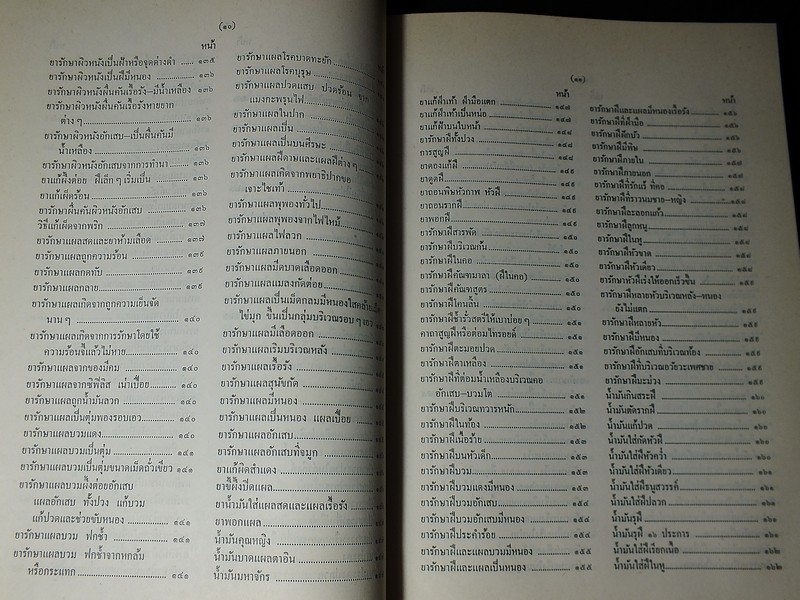 (๑๐)
หน้า
ยารักษาผิวหนังเป็นฝ้าหรือจุดด่างดำ ...... ๑๓๕
ยารักษาผิวหนังเป็นฝีมีหนอง ................. ๑๓๖
ยารักษาผิวหนังผื่นคันเรื้อรัง-มีน้ำเหลือง ๑๓๖
ยารักษาผิวหนังผื่นคันเรื้อรังหายยาก
ต่าง ๆ ............................................ ๑๓๖
ยารักษาผิวหนังอักเสบ-เป็นผื่นคันมี
น้ำเหลือง ........................................ ๑๓๖
ยารักษาผิวหนังอักเสบจากการทำนา ....... ๑๓๖
ยาแก้ผึ้งต่อย ฝีเล็ก ๆ เริ่มเป็น ............... ๑๓๖
ยาแก้เผ็ดร้อน .................................... ๑๓๖
ยารักษาผื่นคันผิวหนังอักเสบ ................ ๑๓๖
วิธีแก้เผ็ดจากพริก .............................. ๑๓๗
ยารักษาแผลสดและยาห้ามเลือด ........... ๑๓๗
ยารักษาแผลถูกความร้อน .................... ๑๓๙
ยารักษาแผลกดทับ .............................. ๑๓๙
ยารักษาแผลกลาย ............................... ๑๓๙
ยารักษาแผลเกิดจากถูกความเย็นจัด
นาน ๆ ............................................ ๑๔๐
ยารักษาแผลเกิดจากการรักษาโดยใช้
ความร้อนจี้แล้วไม่หาย ..................... ๑๔๐
ยารักษาแผลจากของมีคม .................... ๑๔๐
ยารักษาแผลจากซิฟิลิส เน่าเปื่อย .......... ๑๔๐
ยารักษาแผลถูกน้ำมันลวก .................... ๑๔๐
ยารักษาแผลเป็นตุ่มพองรอบเอว ........... ๑๔๐
ยารักษาแผลบวมแดง ........................... ๑๔๐
ยารักษาแผลบวมเป็นตุ่ม ...................... ๑๔๑
ยารักษาแผลบวมเป็นตุ่มขนาดเม็ดถั่วเขียว ๑๔๑
ยารักษาแผลบวมผึ้งต่อยอักเสบ
แผลอักเสบ ทั้งปวง แก้บวม
แก้ปวดและช่วยขับหนอง ................. ๑๔๑
ยารักษาแผลบวม ฟกช้ำ ...................... ๑๔๑
ยารักษาแผลบวม ฟกช้ำจากหกล้ม
หรือกระแทก .................................. ๑๔๑
ยารักษาแผลโรคบาดทะยัก
ยารักษาแผลโรคบุรุษ
ยารักษาแผลปวดแสบ ปวดร้อน
แมงกะพรุนไฟ
ยารักษาแผลในปาก
ยารักษาแผลเป็น
ยารักษาแผลเป็นบนศีรษะ
ยารักษาแผลฝีดาษและแผลฝีต่าง ๆ
ยารักษาแผลเกิดจากพยาธิปากขอ
เจาะไชเท้า
ยารักษาแผลพุพองทั่วไป
ยารักษาแผลพุพองจากไฟไหม้
ยารักษาแผลไฟลวก
ยารักษาแผลภายนอก
ยารักษาแผลมีดบาดเลือดออก
ยารักษาแผลแมลงกัดต่อย
ยารักษาแผลเป็นเม็ดกลมมีหนองใสคล้าย
ไข่มุก ขึ้นเป็นกลุ่มบริเวณรอบ ๆ เอว
ยารักษาแผลมีเลือดออก
ยารักษาแผลเริมบริเวณหลัง
ยารักษาแผลเรื้อรัง
ยารักษาแผลสุนัขกัด
ยารักษาแผลมีหนอง
ยารักษาแผลเป็นหนอง แผลเปื่อย
ยารักษาแผลอักเสบ
ยารักษาแผลอักเสบที่จมูก
ยาแก้ผิดสำแดง
ยาขี้ผึ้งปิดแผล
ยาน้ำมันใส่แผลสดและแผลเรื้อรัง
ยาพอกแผล
น้ำมันคุณหญิง
น้ำมันบาดแผลตาอิน
น้ำมันมหาจักร
(๑๑)
หน้า
ยาแก้ฝ่าเท้า ฝ่ามือแตก ................. ๑๔๗
ยาแก้ฝ่าเท้าเป็นหน่อ ................. ๑๔๗
ยาแก้ฝ้าบนใบหน้า ................. ๑๔๘
ยารักษาฝีทั้งปวง ................. ๑๔๘
การสูญฝี ................. ๑๔๘
ยาดองแก้ฝี ................. ๑๔๙
ยาดูดฝี ................. ๑๔๙
ยาถอนพิษหัวกาฬ หัวฝี ................. ๑๔๙
ยาถอนรากฝี ................. ๑๔๙
ยาพอกฝี ................. ๑๔๙
ยารักษาฝีสารพัด ................. ๑๕๐
ยารักษาฝีบริเวณก้น ................. ๑๕๐
ยารักษาฝีในคอ ................. ๑๕๐
ยารักษาฝีคัณฑมาลา (ฝีในคอ) ................. ๑๕๐
ยารักษาฝีคัณฑสูตร ................. ๑๕๐
ยารักษาฝีโคนลิ้น ................. ๑๕๐
ยารักษาฝีซ้ำรั่วสตรีให้เบาบ่อย ๆ ................. ๑๕๑
คาถาสูญฝีหรือต่อมไทรอยด์ ................. ๑๕๑
ยารักษาฝีตะมอยปวด ................. ๑๕๑
ยารักษาฝีตาเหลือง ................. ๑๕๑
ยารักษาฝีที่ต่อมน้ำเหลืองบริเวณคอ
อักเสบ-บวมโต ................. ๑๕๑
ยารักษาฝีบริเวณทวารหนัก ................. ๑๕๒
ยารักษาฝีในท้อง ................. ๑๕๒
ยารักษาฝีเนื้อร้าย ................. ๑๕๓
ยารักษาฝีบนหัวเด็ก ................. ๑๕๓
ยารักษาฝีบวม ................. ๑๕๓
ยารักษาฝีบวมแดงมีหนอง ................. ๑๕๓
ยารักษาฝีบวมอักเสบ ................. ๑๕๔
ยารักษาฝีบวมอักเสบมีหนอง ................. ๑๕๔
ยารักษาฝีประคำร้อย ................. ๑๕๔
ยารักษาฝีและแผลบวมมีหนอง ................. ๑๕๕
ยารักษาฝีและแผลเป็นหนอง ................. ๑๕๕
หน้า
ยารักษาฝีและแผลมีหนองเรื้อรัง ................. ๑๕๖
ยารักษาฝีที่ฝ่ามือ ................. ๑๕๖
ยารักษาฝีฝักบัว ................. ๑๕๖
ยารักษาฝีมีพิษ ................. ๑๕๖
ยารักษาฝีภายใน ................. ๑๕๗
ยารักษาฝีภายนอก ................. ๑๕๘
ยารักษาฝีที่รักแร้ ที่คอ ................. ๑๕๘
ยารักษาฝีที่ราวนมชาย-หญิง ................. ๑๕๘
ยารักษาฝีละลอกแก้ว ................. ๑๕๘
ยารักษาฝีลูกหนู ................. ๑๕๘
ยารักษาฝีในหู ................. ๑๕๘
ยารักษาฝีหัวขาด ................. ๑๕๘
ยารักษาฝีหัวเดียว ................. ๑๕๘
ยารักษาหัวฝีเร่งให้ออกเร็วขึ้น ................. ๑๕๙
ยารักษาฝีหลายหัวบริเวณหลัง-หนอง
ยังไม่แตก ................. ๑๕๙
ยารักษาฝีหลายหัว ................. ๑๕๙
ยารักษาฝีมีหนอง ................. ๑๕๙
ยารักษาฝีอักเสบที่บริเวณท้อง ................. ๑๕๙
ยารักษาฝีที่บริเวณอวัยวะเพศชาย ................. ๑๕๙
ยารักษาฝีมะม่วง ................. ๑๕๙
น้ำมันกินสระฝี ................. ๑๖๐
น้ำมันตัดรากฝี ................. ๑๖๐
น้ำมันแก้ปวด ................. ๑๖๐
น้ำมันใส่กัดหัวฝี ................. ๑๖๐
น้ำมันใส่ฝีหัวคว่ำ ................. ๑๖๐
น้ำมันใส่ฝีหัวเดียว ................. ๑๖๑
น้ำมันใส่ฝีธนูสวรรค์ ................. ๑๖๑
น้ำมันใส่ฝีปลวก ................. ๑๖๑
น้ำมันรุฝี ................. ๑๖๑
น้ำมันรุฝี ๑๖ ประการ ................. ๑๖๑
น้ำมันใส่ฝีเรียกเนื้อ ................. ๑๖๒
น้ำมันใส่ฝีในหู ................. ๑๖๒